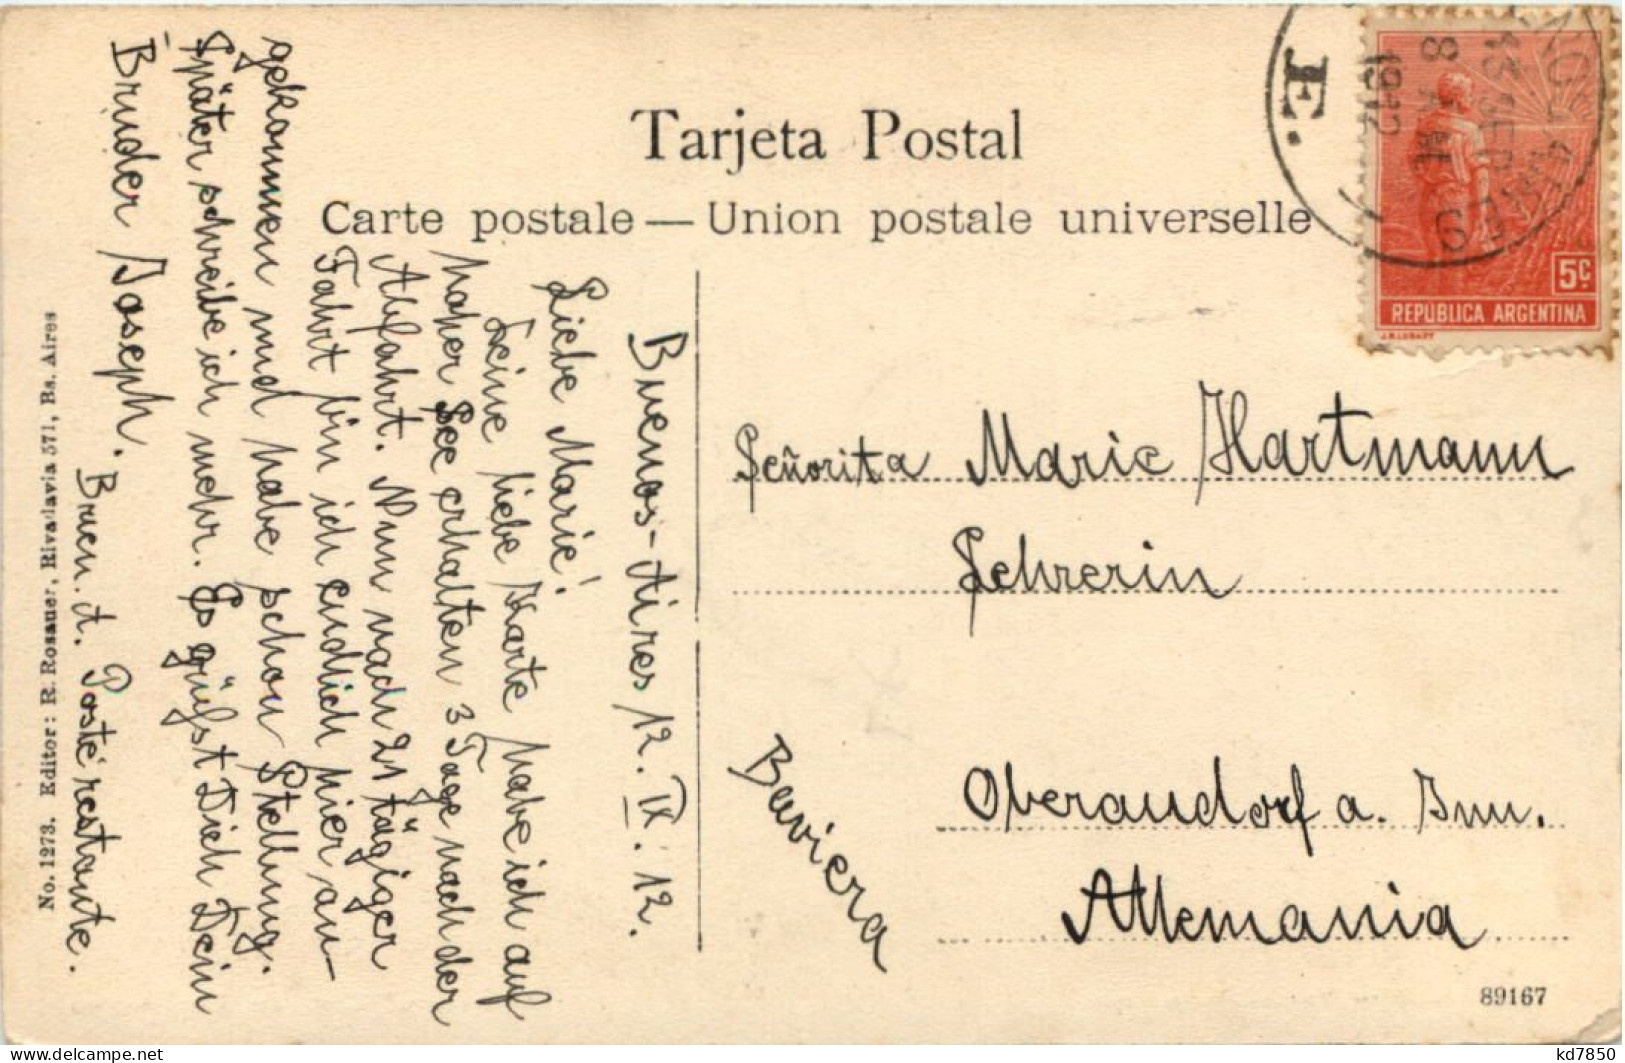 Tarjeta Postal
Carte postale — Union postale universelle
E.
13 SEP
8 AM
1912
5C
REPUBLICA ARGENTINA
Buenos-Aires 12. IX. 12.
Liebe Marie!
Deine liebe Karte habe ich auf
hoher See erhalten 3 Tage nach der
Abfahrt. Nun nach 21 tägiger
Fahrt bin ich endlich hier an-
gekommen und habe schon Stellung.
Später schreibe ich mehr. Es grüßt Dich Dein
Bruder Joseph.
Buen. A. Poste restante.
Señorita Marie Hartmann
Lehrerin
Oberaudorf a. Inn.
Baviera
Allemania
No. 1273. Editor: R. Rosauer, Rivadavia 571, Bs. Aires
89167
kd7850